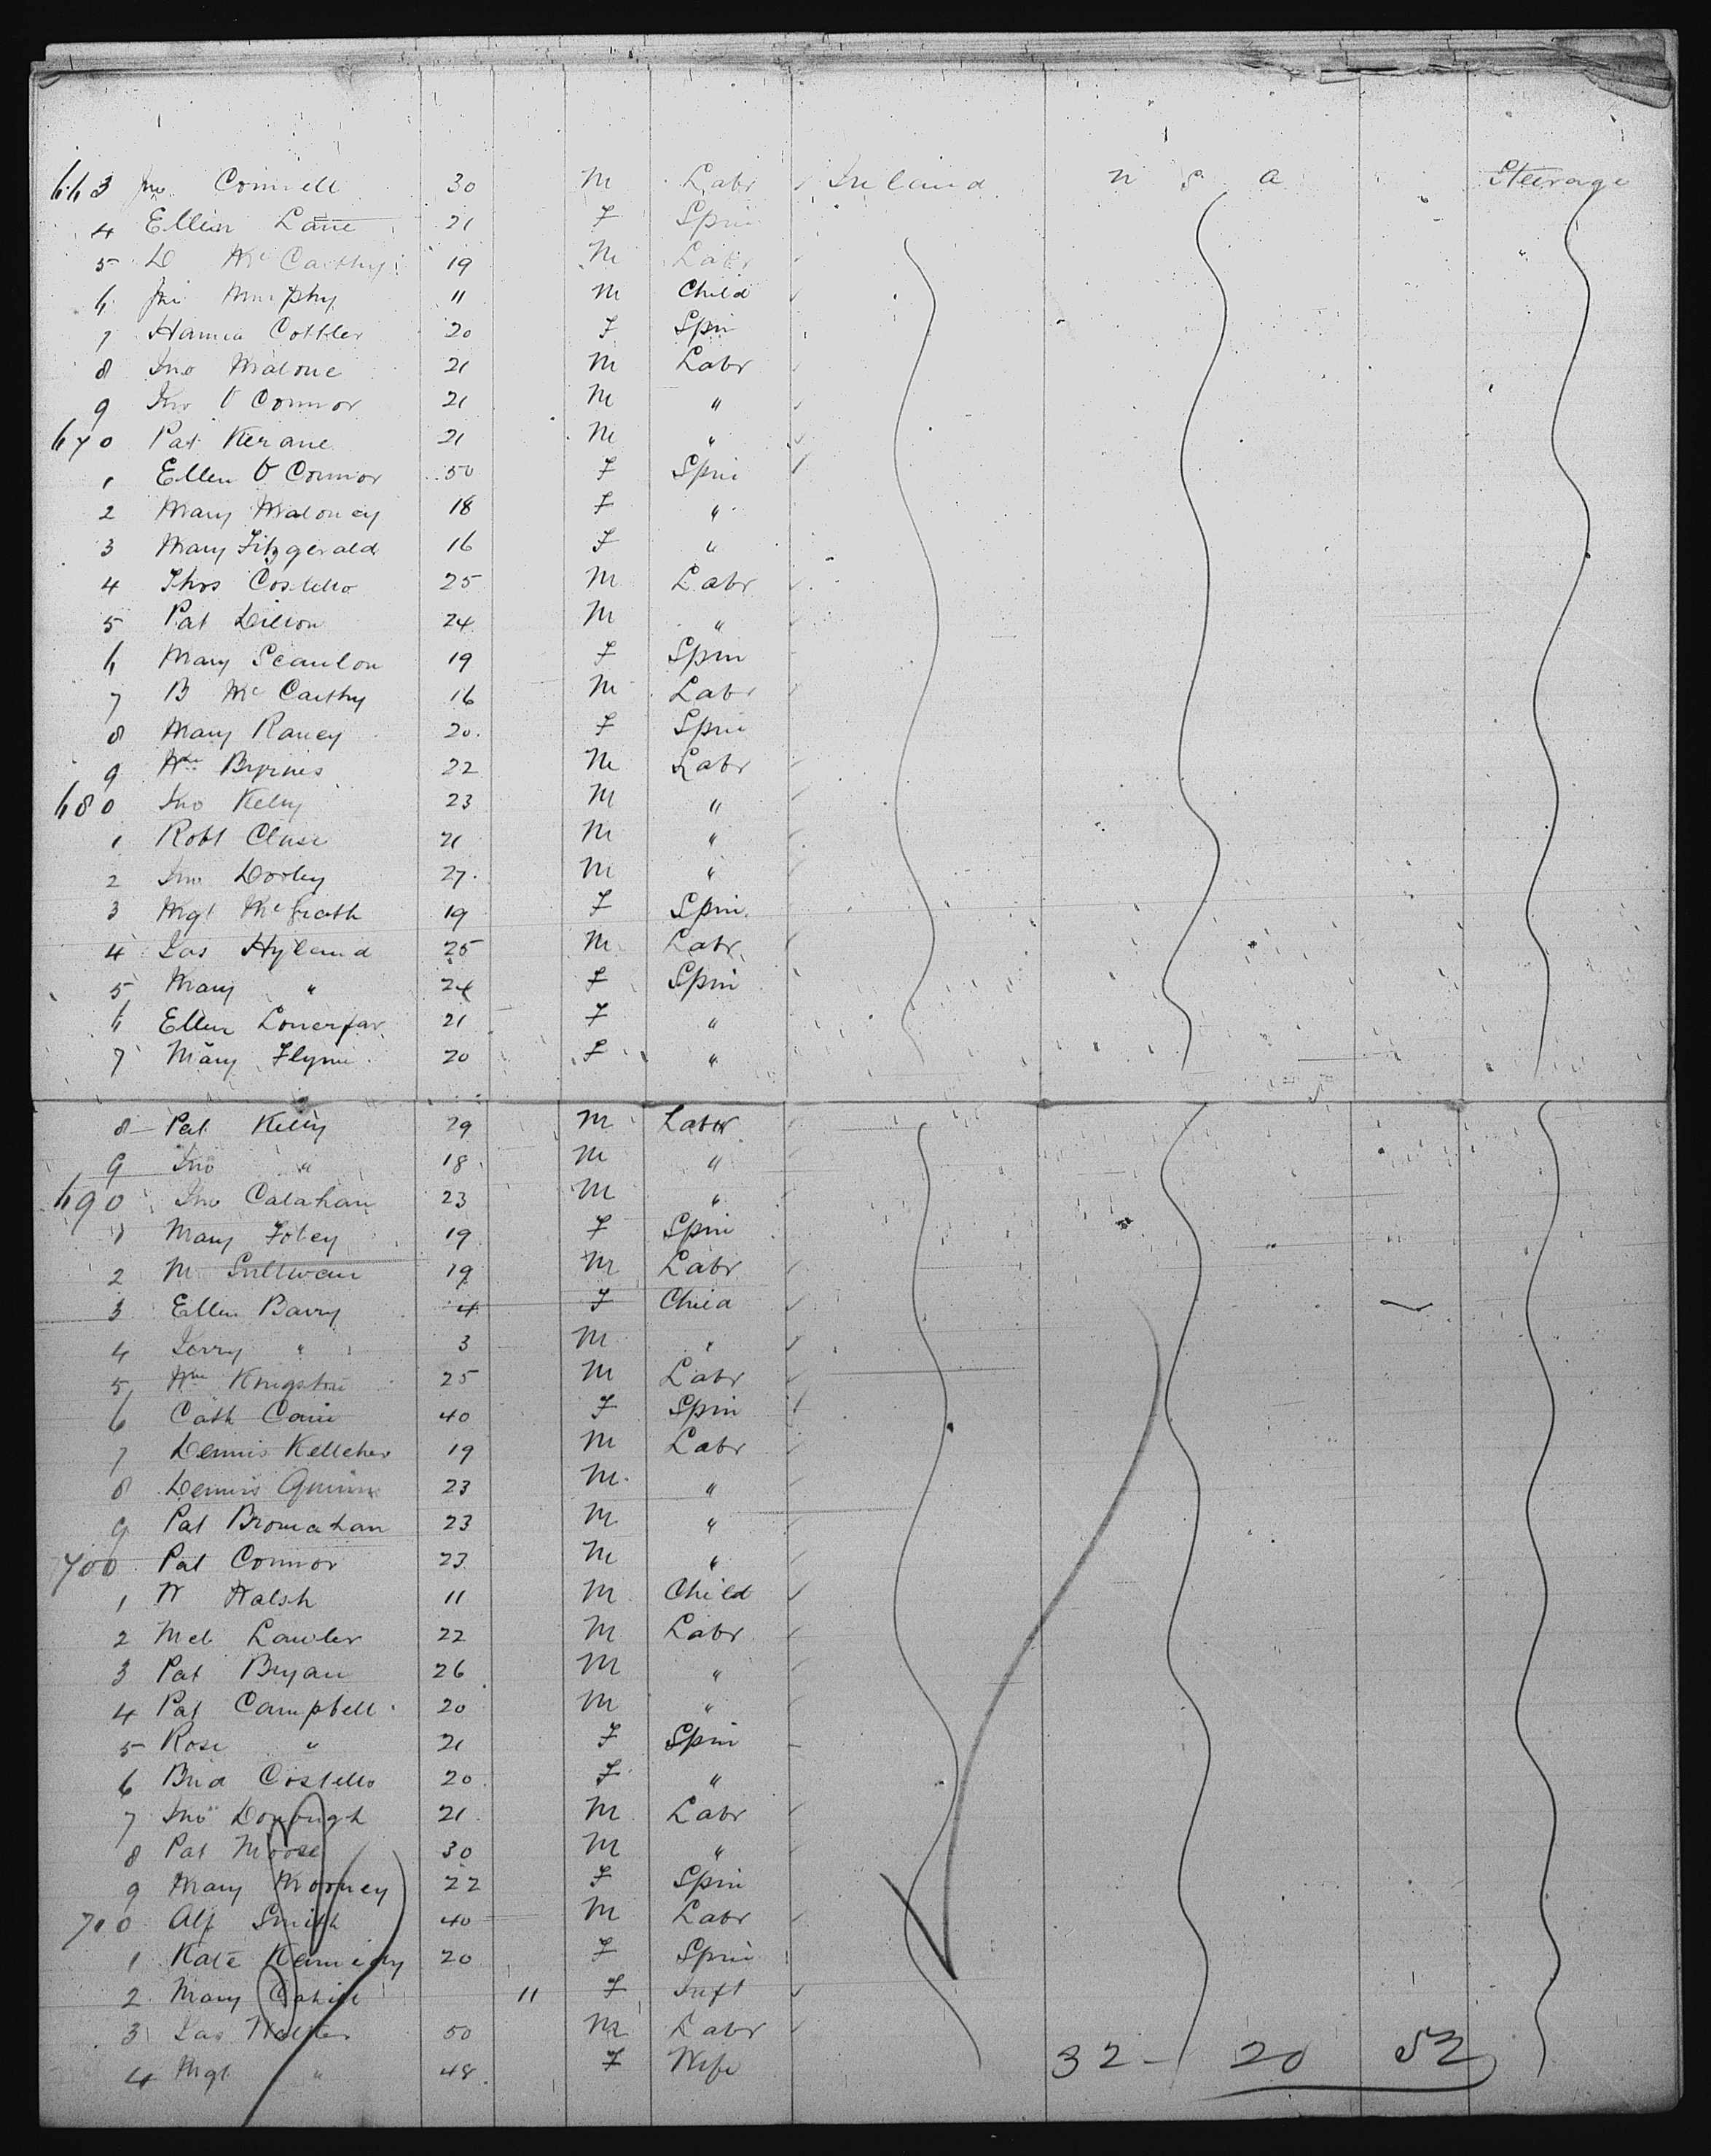 663 Jno Connell 30 M Labr Ireland U S A Steerage
4 Ellen Lane 21 F Spin
5 D McCarthy 19 M Labr
6 Jno Murphy 11 M Child
7 Hannia Cottler 20 F Spin
8 Jno Malone 21 M Labr
9 Jno O Connor 21 M "
670 Pat Kerane 21 M "
1 Ellen O Connor 50 F Spin
2 Mary Maloney 18 F "
3 Mary Fitzgerald 16 F "
4 Thos Costello 25 M Labr
5 Pat Dillon 24 M "
6 Mary Scanlon 19 F Spin
7 B McCarthy 16 M Labr
8 Mary Raney 20 F Spin
9 Wm Byrnes 22 M Labr
680 Jno Kelly 23 M "
1 Robt Cluse 21 M "
2 Jno Dorley 27 M "
3 Mgt McGrath 19 F Spin
4 Jas Hyland 25 M Labr
5 Mary " 24 F Spin
6 Ellen 21 F "
7 Mary Flynn 20 F "
8 Pat Kelly 29 M Labr
9 Jno " 18 M "
690 Jno Calahan 23 M "
1 Mary Foley 19 F Spin
2 M Sullivan 19 M Labr
3 Ellen Barry 4 F Child
4 Jerry " 3 M "
5 Wm Kingston 25 M Labr
6 Cath Cain 40 F Spin
7 Dennis Kelleher 19 M Labr
8 Dennis Quinn 23 M "
9 Pat Bromahan 23 M "
700 Pat Connor 23 M "
1 W Walsh 11 M Child
2 Mch Lawler 22 M Labr
3 Pat Bryan 26 M "
4 Pat Campbell 20 M "
5 Rose " 21 F Spin
6 Brid Costello 20 F "
7 Jno Donough 21 M Labr
8 Pat Moore 30 M "
9 Mary Mooney 22 F Spin
710 Alf Smith 40 M Labr
1 Kate Kennedy 20 F Spin
2 Mary Cahill 11 F Inft
3 Jas Walter 50 M Labr
4 Mgt " 48 F Wife
32 - 20 52